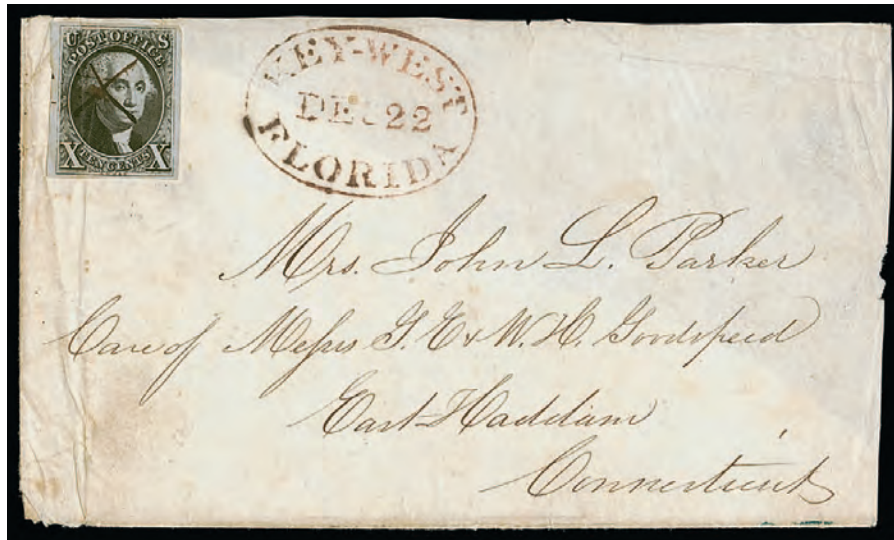 U S
POST OFFICE
X TEN CENTS X
KEY-WEST
DEC 22
FLORIDA
Mrs. John L. Parker
Care of Messrs G. E & W. H. Goodspeed
East Haddam
Connecticut